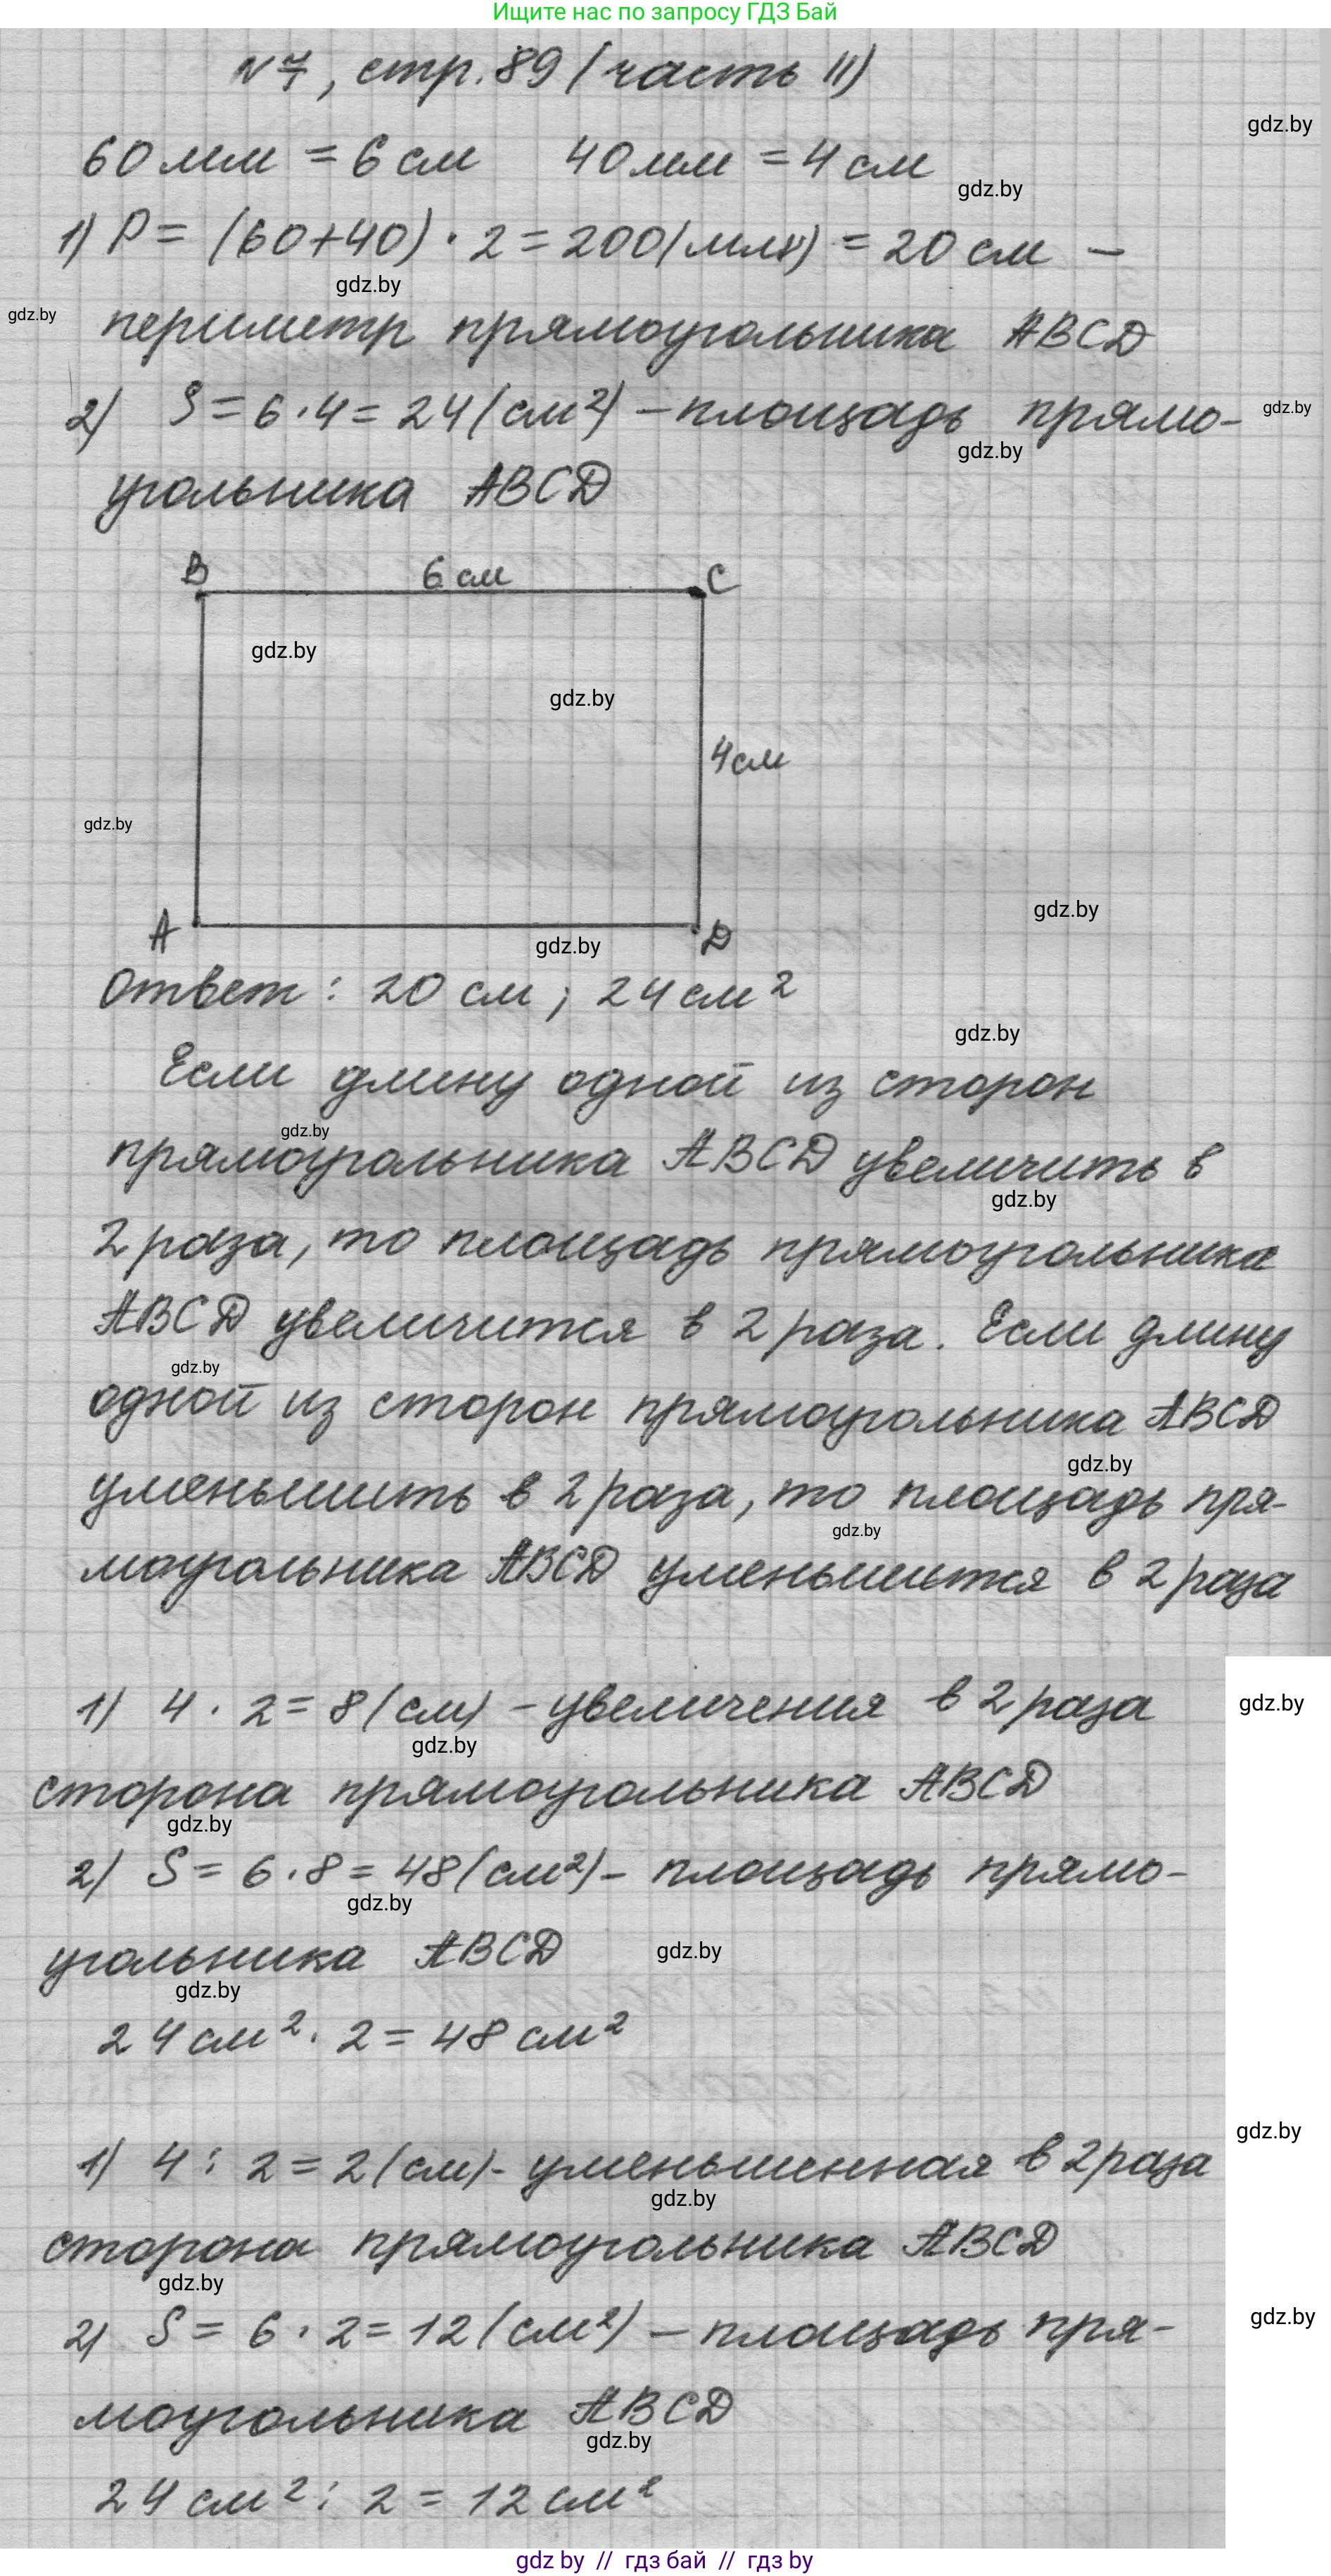 Ищите нас по запросу ГДЗ Бай
№7, стр. 89 (часть II)
gdz.by
60 мм = 6 см 40 мм = 4 см
gdz.by
1) P = (60+40) · 2 = 200 (мм) = 20 см –
gdz.by
gdz.by
периметр прямоугольника ABCD
2) S = 6 · 4 = 24 (см²) – площадь прямо-
gdz.by
gdz.by
угольника ABCD
B 6 см C
gdz.by
gdz.by
4 см
gdz.by
gdz.by
A D
gdz.by
Ответ: 20 см; 24 см²
gdz.by
Если длину одной из сторон
gdz.by
прямоугольника ABCD увеличить в
gdz.by
2 раза, то площадь прямоугольника
ABCD увеличится в 2 раза. Если длину
gdz.by
одной из сторон прямоугольника ABCD
gdz.by
уменьшить в 2 раза, то площадь пря-
gdz.by
моугольника ABCD уменьшится в 2 раза
1) 4 · 2 = 8 (см) – увеличения в 2 раза
gdz.by
gdz.by
сторона прямоугольника ABCD
gdz.by
2) S = 6 · 8 = 48 (см²) – площадь прямо-
gdz.by
угольника ABCD
gdz.by
gdz.by
24 см² · 2 = 48 см²
gdz.by
1) 4 : 2 = 2 (см) - уменьшенная в 2 раза
gdz.by
сторона прямоугольника ABCD
gdz.by
2) S = 6 · 2 = 12 (см²) – площадь пря-
gdz.by
моугольника ABCD
gdz.by
24 см² : 2 = 12 см²
gdz by // гдз бай // гдз by